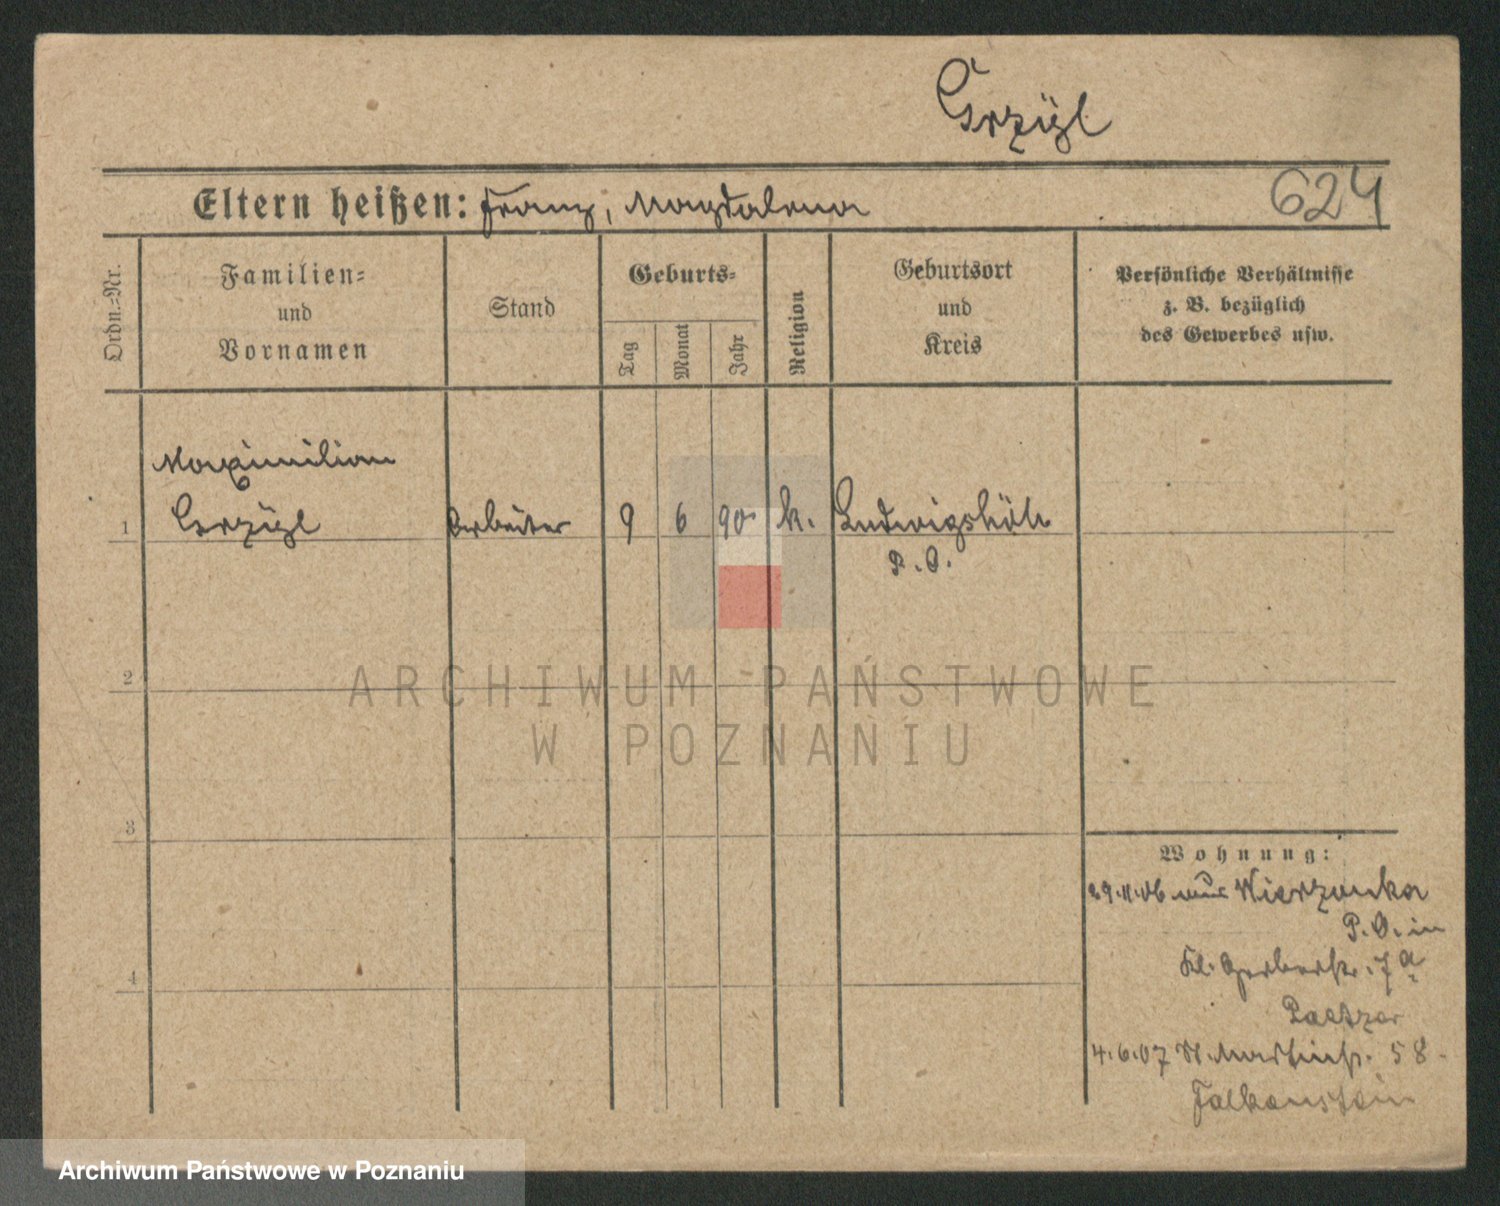 Grzÿl
Eltern heißen: Franz, Magdalena
624
Ordn.-Nr.
Familien-
und
Vornamen
Stand
Geburts-
Tag
Monat
Jahr
Religion
Geburtsort
und
Kreis
Persönliche Verhältnisse
z. B. bezüglich
des Gewerbes usw.
Maximilian
1 Grzÿl Arbeiter 9 6 90 k. Ludwigshöh
P. O.
2
3
4
Wohnung:
29.11.06 aus Wierzonka
P. O. in
Kl. Gerberstr. 7a
Paetzer
4.6.07 St. Martinstr. 58
Falkenstein
ARCHIWUM PAŃSTWOWE
W POZNANIU
Archiwum Państwowe w Poznaniu